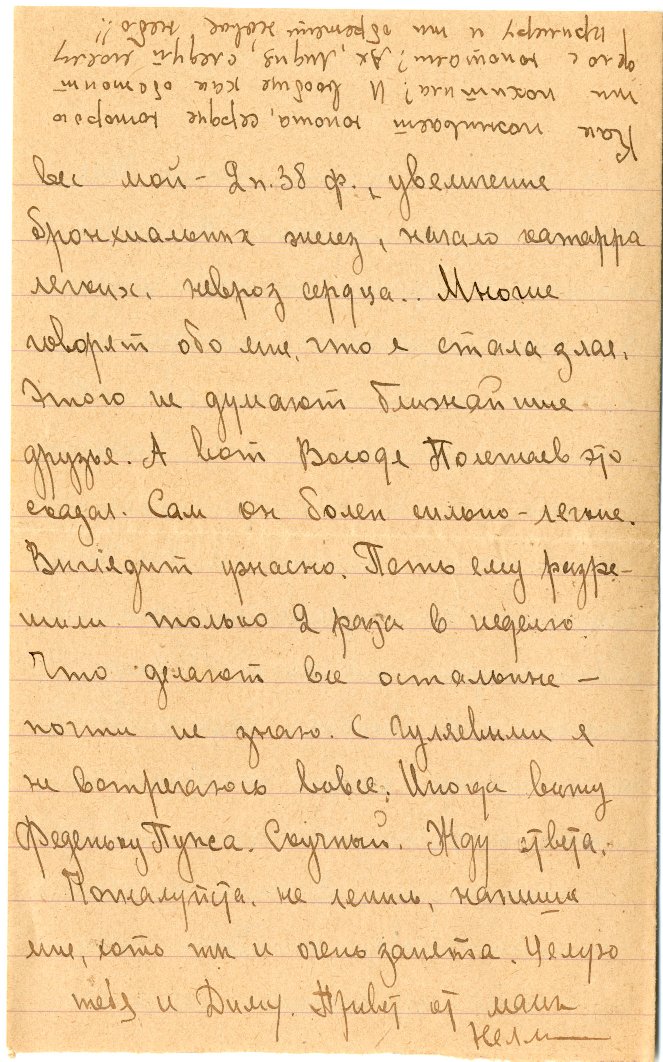 вес мой – 2 п. 38 ф., увеличение
бронхиальных желез, начало катарра
легких, невроз сердца.. Многие
говорят обо мне, что я стала злая.
Этого не думают ближайшие
друзья. А вот Володя Полетаев это
сказал. Сам он болен сильно – легкие.
Выглядит ужасно. Петь ему разре-
шили только 2 раза в неделю
Что делают все остальные –
почти не знаю. С Гуляевыми я
не встречаюсь вовсе. Иногда вижу
Феденьку Пукса. Скучный. Жду ответа.
Пожалуйста, не ленись, напиши
мне, хоть ты и очень занята. Целую
тебя и Диму. Привет от мамы
Нелли
Как поживает юноша, сердце которого
ты похитила? И вообще как обстоит
дело с юношами? Ах, Лидия, следуй моему
примеру и ты обретешь новое небо!!